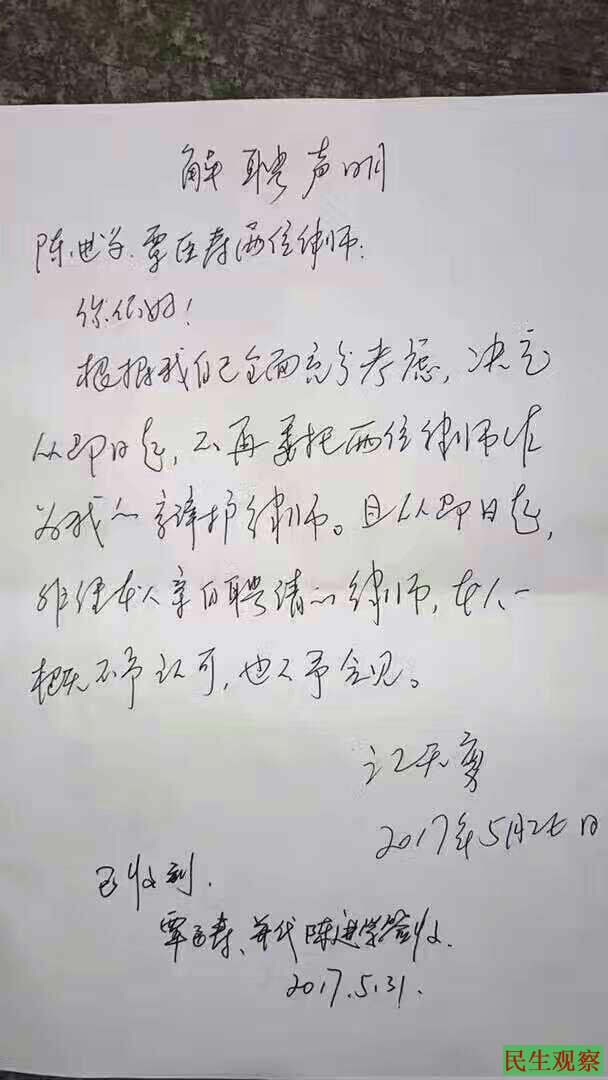 解聘声明
陈进学、覃臣寿两位律师:
你们好!
根据我自己全面充分考虑,决定
从即日起,不再委托两位律师作
为我的辩护律师。且从即日起,
非经本人亲自聘请的律师,本人一
概不予认可,也不予会见。
江天勇
2017年5月26日
已收到.
覃臣寿、并代陈进学签收.
2017.5.31.
民生观察